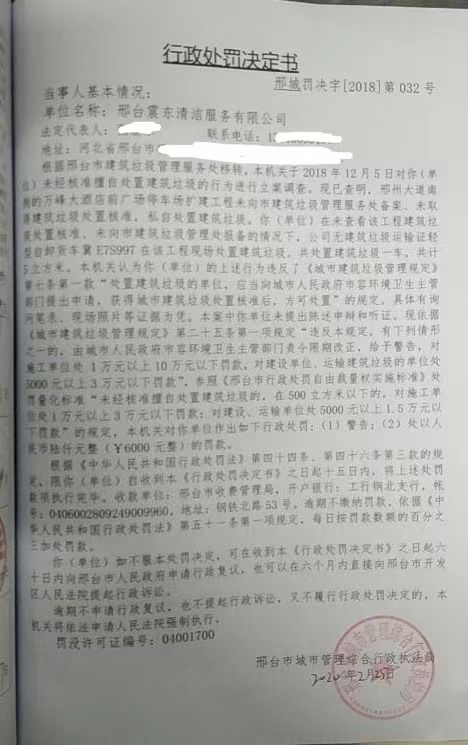 行政处罚决定书
邢城罚决字[2018]第 032 号
当事人基本情况：
单位名称：邢台震东清洁服务有限公司
法定代表人： 联系电话：1
地址：河北省邢台市
根据邢台市建筑垃圾管理服务处移转，本机关于 2018 年 12 月 5 日对你(单
位）未经核准擅自处置建筑垃圾的行为进行立案调查。现已查明，邢州大道南
侧的万峰大酒店前广场停车场扩建工程未向市建筑垃圾管理服务处备案、未取
得建筑垃圾处置核准，私自处置建筑垃圾。你（单位）在未查看该工程建筑垃
圾处置核准、未向市建筑垃圾管理处报备的情况下，公司无建筑垃圾运输证轻
型自卸货车冀 E7S997 在该工程现场处置建筑垃圾，共处置建筑垃圾一车，共计
5 立方米。本机关认为你(单位)的上述行为违反了《城市建筑垃圾管理规定》
第七条第一款“处置建筑垃圾的单位，应当向城市人民政府市容环境卫生主管
部门提出申请，获得城市建筑垃圾处置核准后，方可处置”的规定。具体有询
问笔录、现场照片等证据为凭。本案中你单位未提出陈述申辩和听证。现依据
《城市建筑垃圾管理规定》第二十五条第一项规定“违反本规定，有下列情形
之一的，由城市人民政府市容环境卫生主管部门责令限期改正，给予警告，对
施工单位处 1 万元以上 10 万元以下罚款”,对建设单位、运输建筑垃圾的单位处
5000 元以上 3 万元以下罚款”，参照《邢台市行政处罚自由裁量权实施标准》处
罚量化标准“未经核准擅自处置建筑垃圾的，在 500 立方米以下的，对施工单
位处 1 万元以上 3 万元以下罚款；对建设、运输单位处 5000 元以上 1.5 万元以
下罚款”的规定，本机关对你单位作出如下行政处罚：(1) 警告；(2) 处以人
民币陆仟元整（￥6000 元整）的罚款。
根据《中华人民共和国行政处罚法》第四十四条、第四十六条第三款的规
定，限你（单位）自收到本《行政处罚决定书》之日起十五日内，将上述处罚
款项执行完毕。收款单位：邢台市收费管理局，开户银行：工行钢北支行，帐
号：0406002809249009960，地址：钢铁北路 53 号。逾期不缴纳罚款，依据《中
华人民共和国行政处罚法》第五十一条第一项规定，每日按罚款数额的百分之
三加处罚款。
你（单位）如不服本处罚决定，可在收到本《行政处罚决定书》之日起六
十日内向邢台市人民政府申请行政复议，也可以在六个月内直接向邢台市开发
区人民法院提起行政诉讼。
逾期不申请行政复议，也不提起行政诉讼，又不履行行政处罚决定的，本
机关将依法申请人民法院强制执行。
罚没许可证编号：04001700
邢台市城市管理综合行政执法局
2020 年 2 月 25 日